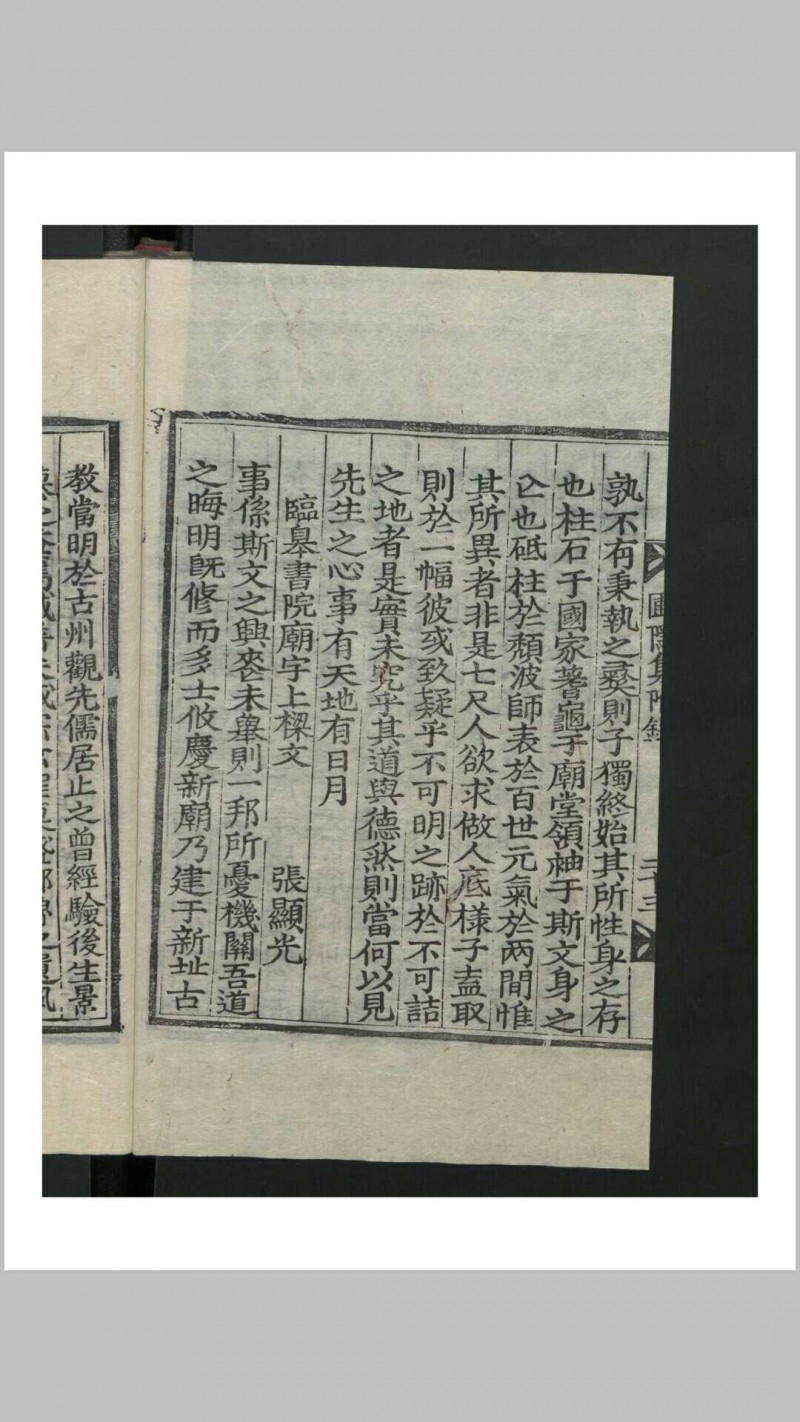 圃隱集附錄 二十三
孰不有秉執之彛則子獨終始其所性身之存
也柱石于國家蓍龜于廟堂領袖于斯文身之
亾也砥柱於頹波師表於百世元氣於兩間惟
其所異者非是七尺人欲求做人底樣子盍取
則於一幅彼或致疑乎不可明之跡於不可詰
之地者是實未究乎其道與德然則當何以見
先生之心事有天地有日月
臨皐書院廟宇上樑文 張顯光
事係斯文之興喪未擧則一邦所憂機關吾道
之晦明旣修而多士攸慶新廟乃建于新址古
教當明於古州觀先儒居止之曾經驗後生景